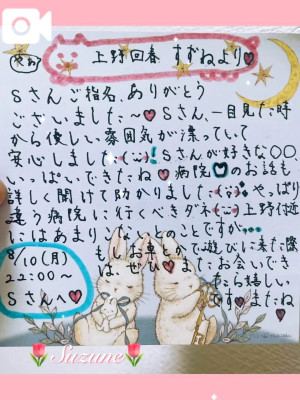 上野回春 すずねより♥
Sさんご指名、ありがとう
ございました〜♥Sさん、一目見た時
から優しい雰囲気が漂っていて
安心しました！Sさんが好きな〇〇
いっぱいできたね♥病院のお話も
詳しく聞けて助かりました やっぱり
違う病院に行くべきダネ 上野付近
にはあまりこないとのことですが…
もしお車で遊びに来た際
は、ぜひまたお会いでき
たら嬉しい
です♥またね
8/10(月)
22:00〜
Sさんへ♥
Suzune